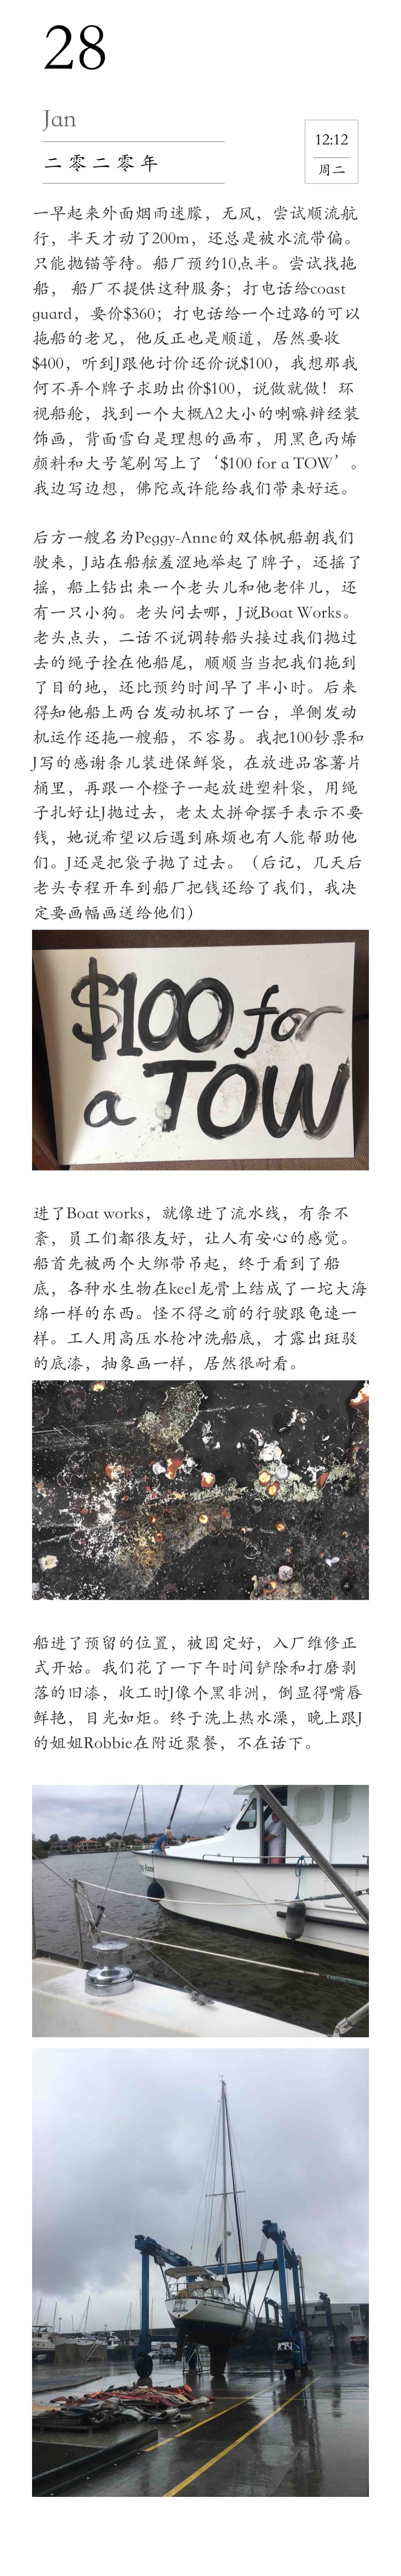 28
Jan
二零二零年
12:12
周二
一早起来外面烟雨迷朦，无风，尝试顺流航
行，半天才动了200m，还总是被水流带偏。
只能抛锚等待。船厂预约10点半。尝试找拖
船， 船厂不提供这种服务；打电话给coast
guard，要价$360；打电话给一个过路的可以
拖船的老兄，他反正也是顺道，居然要收
$400，听到J跟他讨价还价说$100，我想那我
何不弄个牌子求助出价$100，说做就做！环
视船舱，找到一个大概A2大小的喇嘛辩经装
饰画，背面雪白是理想的画布，用黑色丙烯
颜料和大号笔刷写上了‘$100 for a TOW’。
我边写边想，佛陀或许能给我们带来好运。
后方一艘名为Peggy-Anne的双体帆船朝我们
驶来，J站在船舷羞涩地举起了牌子，还摇了
摇，船上钻出来一个老头儿和他老伴儿，还
有一只小狗。老头问去哪，J说Boat Works。
老头点头，二话不说调转船头接过我们抛过
去的绳子拴在他船尾，顺顺当当把我们拖到
了目的地，还比预约时间早了半小时。后来
得知他船上两台发动机坏了一台，单侧发动
机运作还拖一艘船，不容易。我把100钞票和
J写的感谢条儿装进保鲜袋，在放进品客薯片
桶里，再跟一个橙子一起放进塑料袋，用绳
子扎好让J抛过去，老太太拼命摆手表示不要
钱，她说希望以后遇到麻烦也有人能帮助他
们。J还是把袋子抛了过去。（后记，几天后
老头专程开车到船厂把钱还给了我们，我决
定要画幅画送给他们）
$100 for
a TOW
进了Boat works，就像进了流水线，有条不
紊，员工们都很友好，让人有安心的感觉。
船首先被两个大绑带吊起，终于看到了船
底，各种水生物在keel龙骨上结成了一坨大海
绵一样的东西。怪不得之前的行驶跟龟速一
样。工人用高压水枪冲洗船底，才露出斑驳
的底漆，抽象画一样，居然很耐看。
船进了预留的位置，被固定好，入厂维修正
式开始。我们花了一下午时间铲除和打磨剥
落的旧漆，收工时J像个黑非洲，倒显得嘴唇
鲜艳，目光如炬。终于洗上热水澡，晚上跟J
的姐姐Robbie在附近聚餐，不在话下。